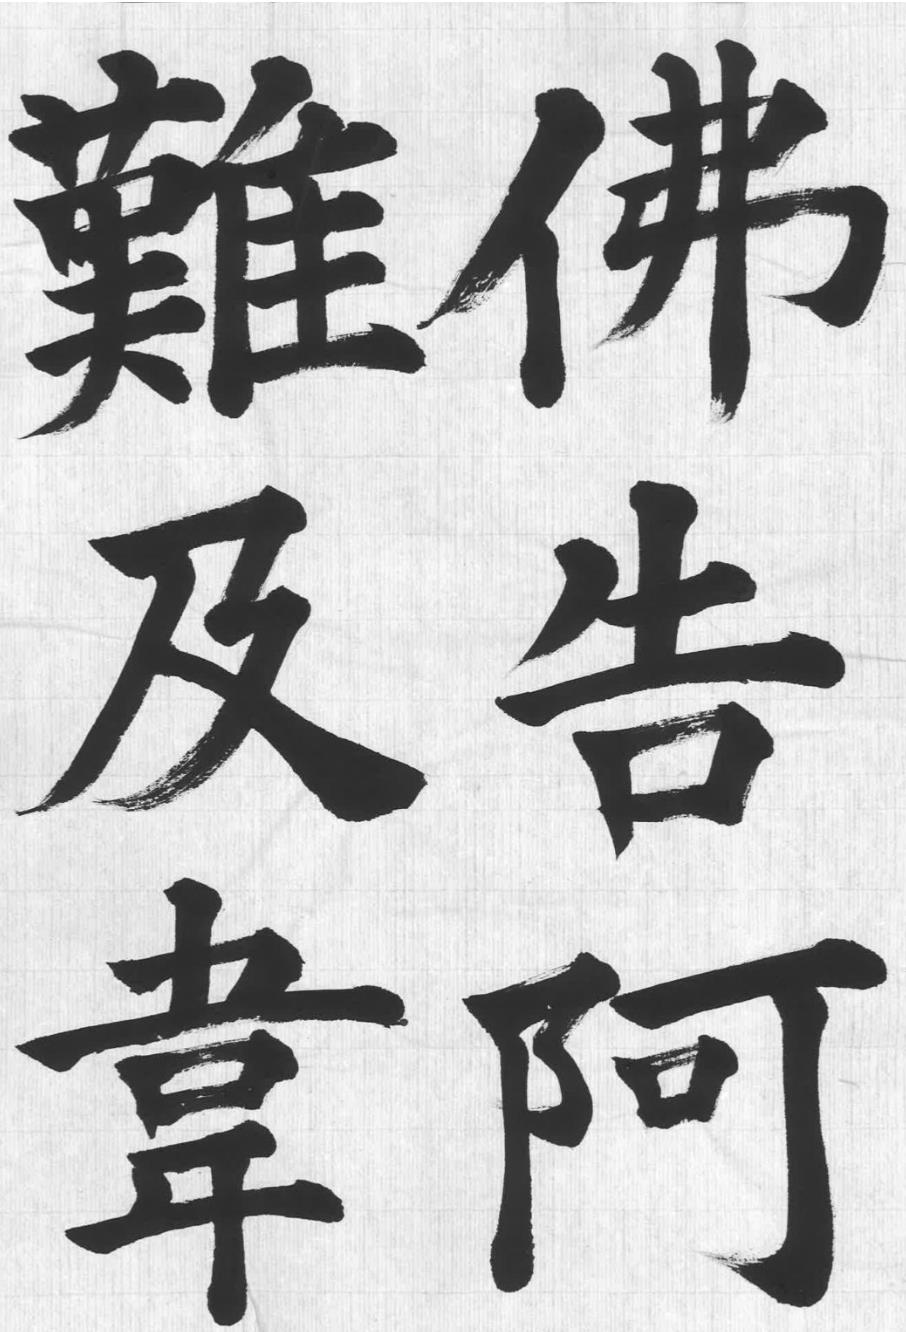 佛告阿
難及韋